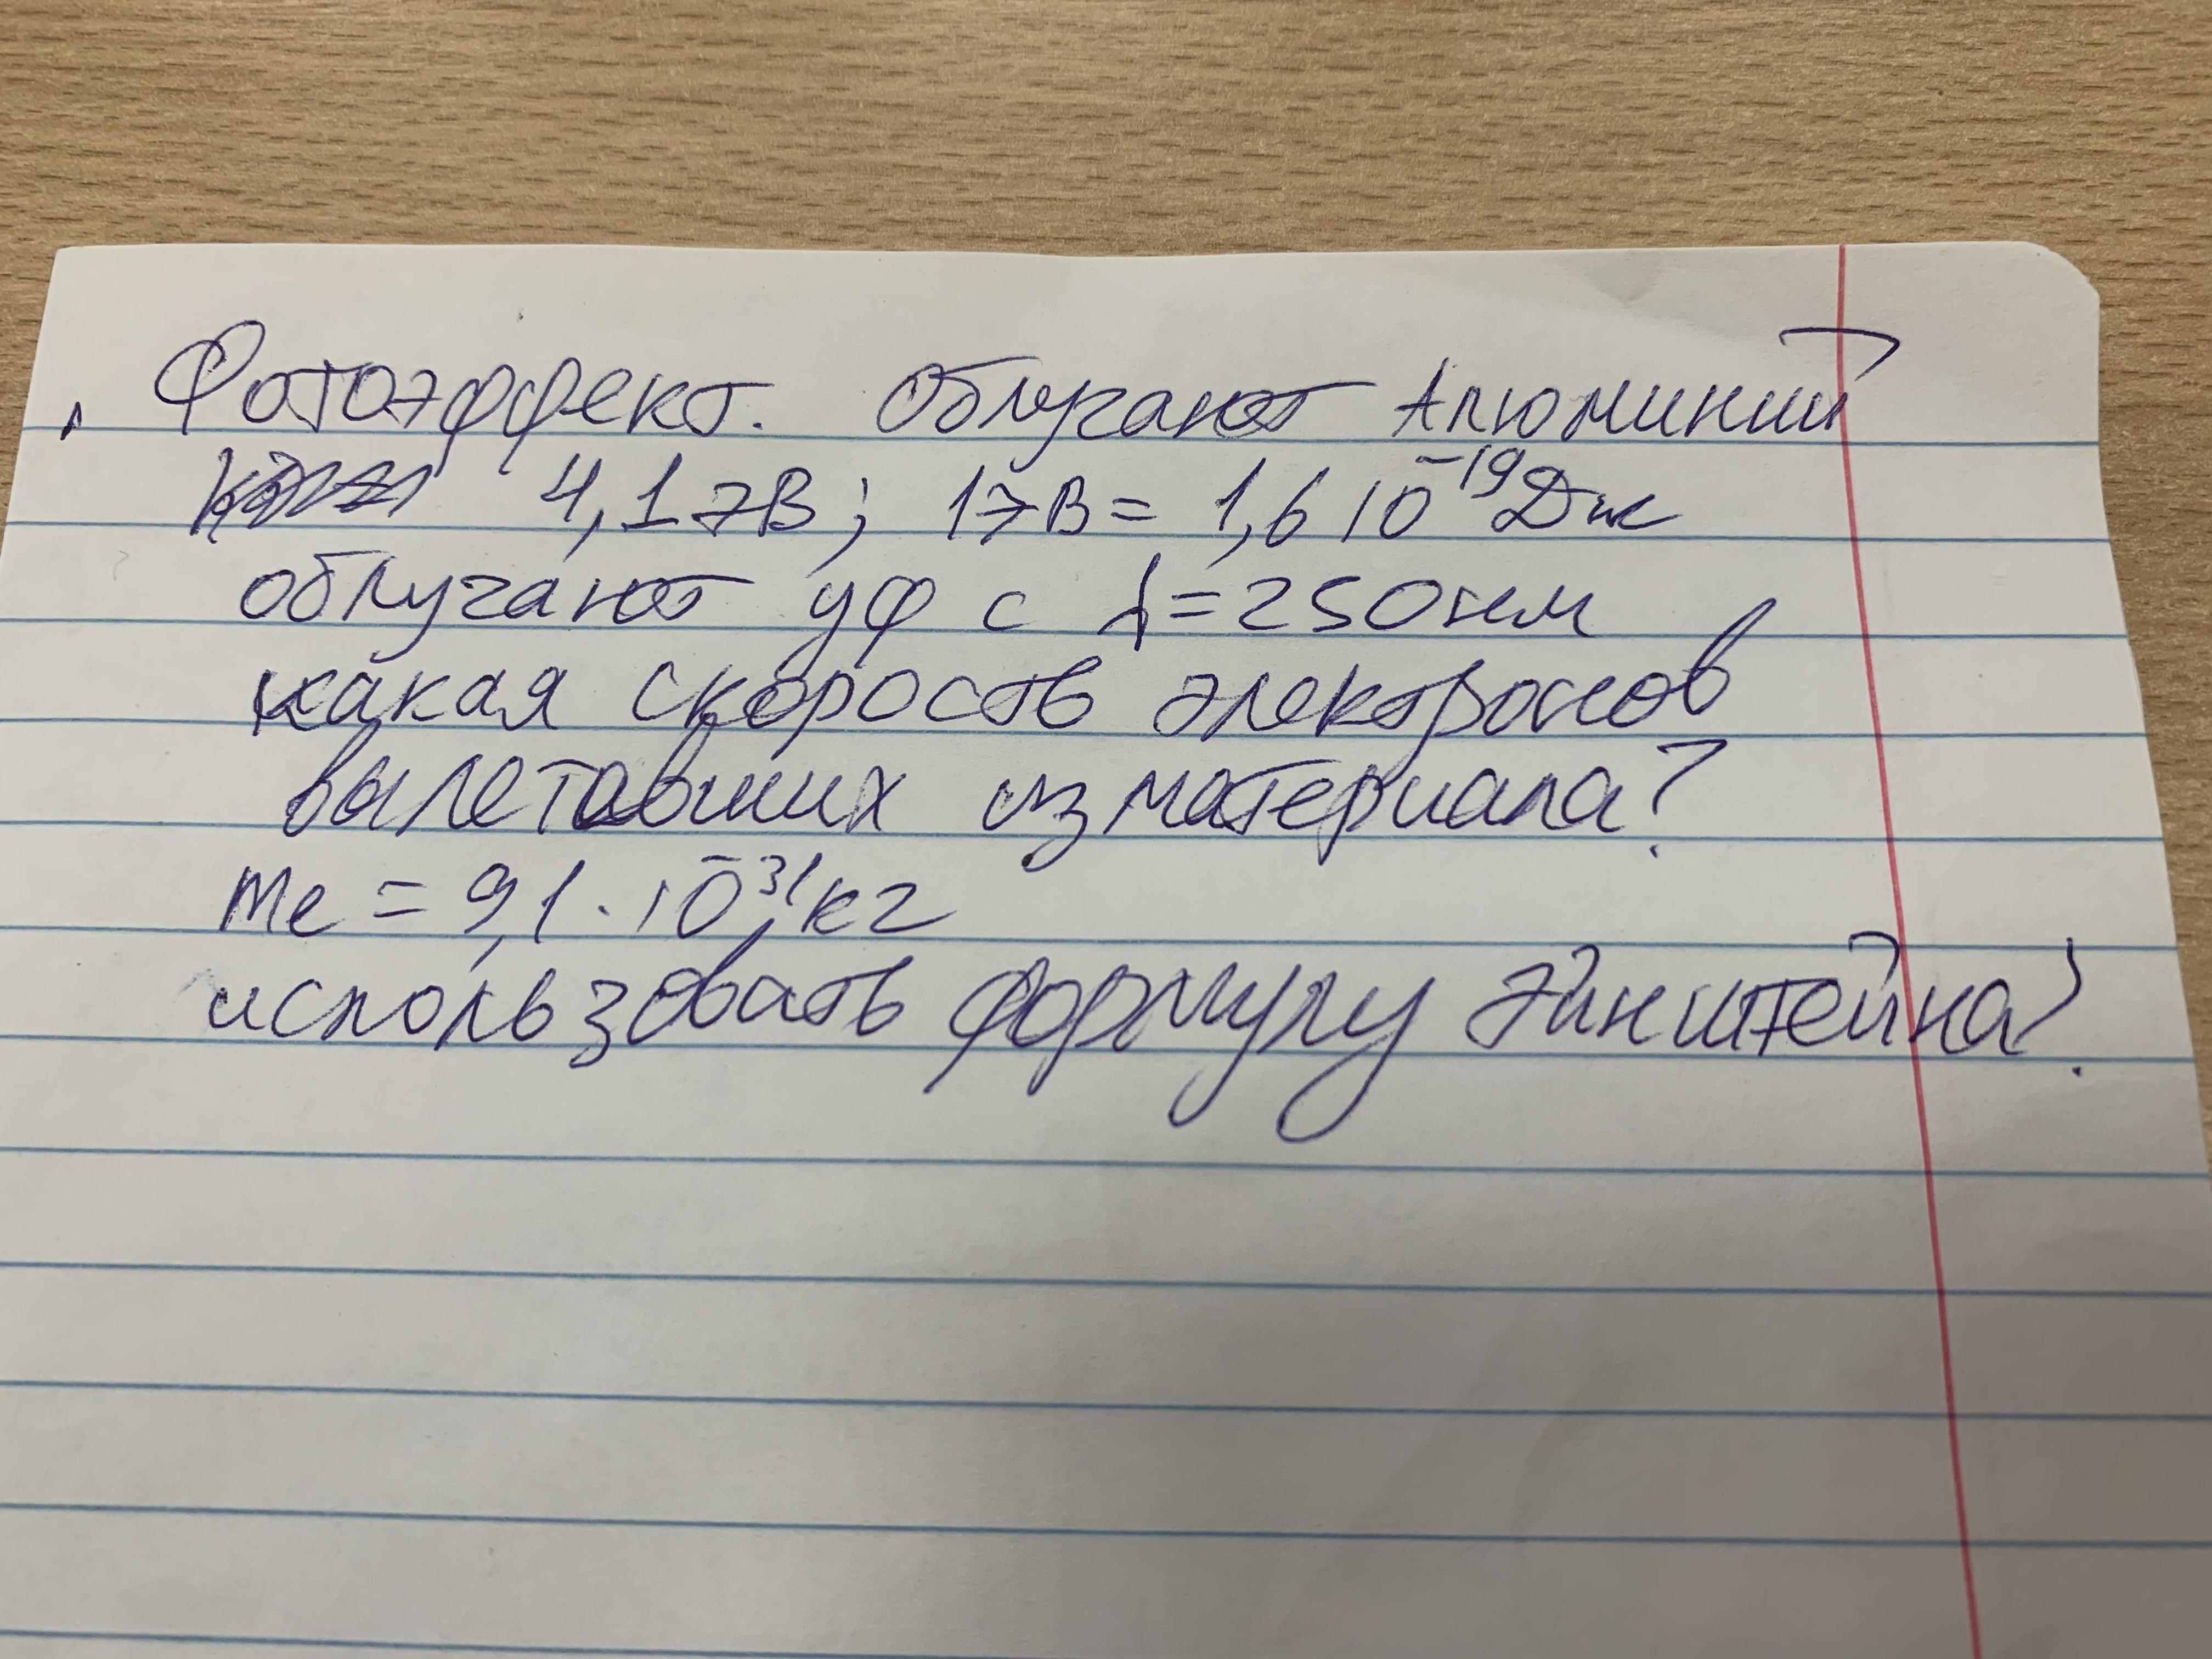 Фотоэффект. Облучают Алюминий
4,1 эВ; 1эВ = 1,6 10⁻¹⁹Дж
облучают уф с λ=250нм
какая скорость электронов
вылетавших из материала?
me = 9,1 · 10⁻³¹кг
использовать формулу Эйнштейна?